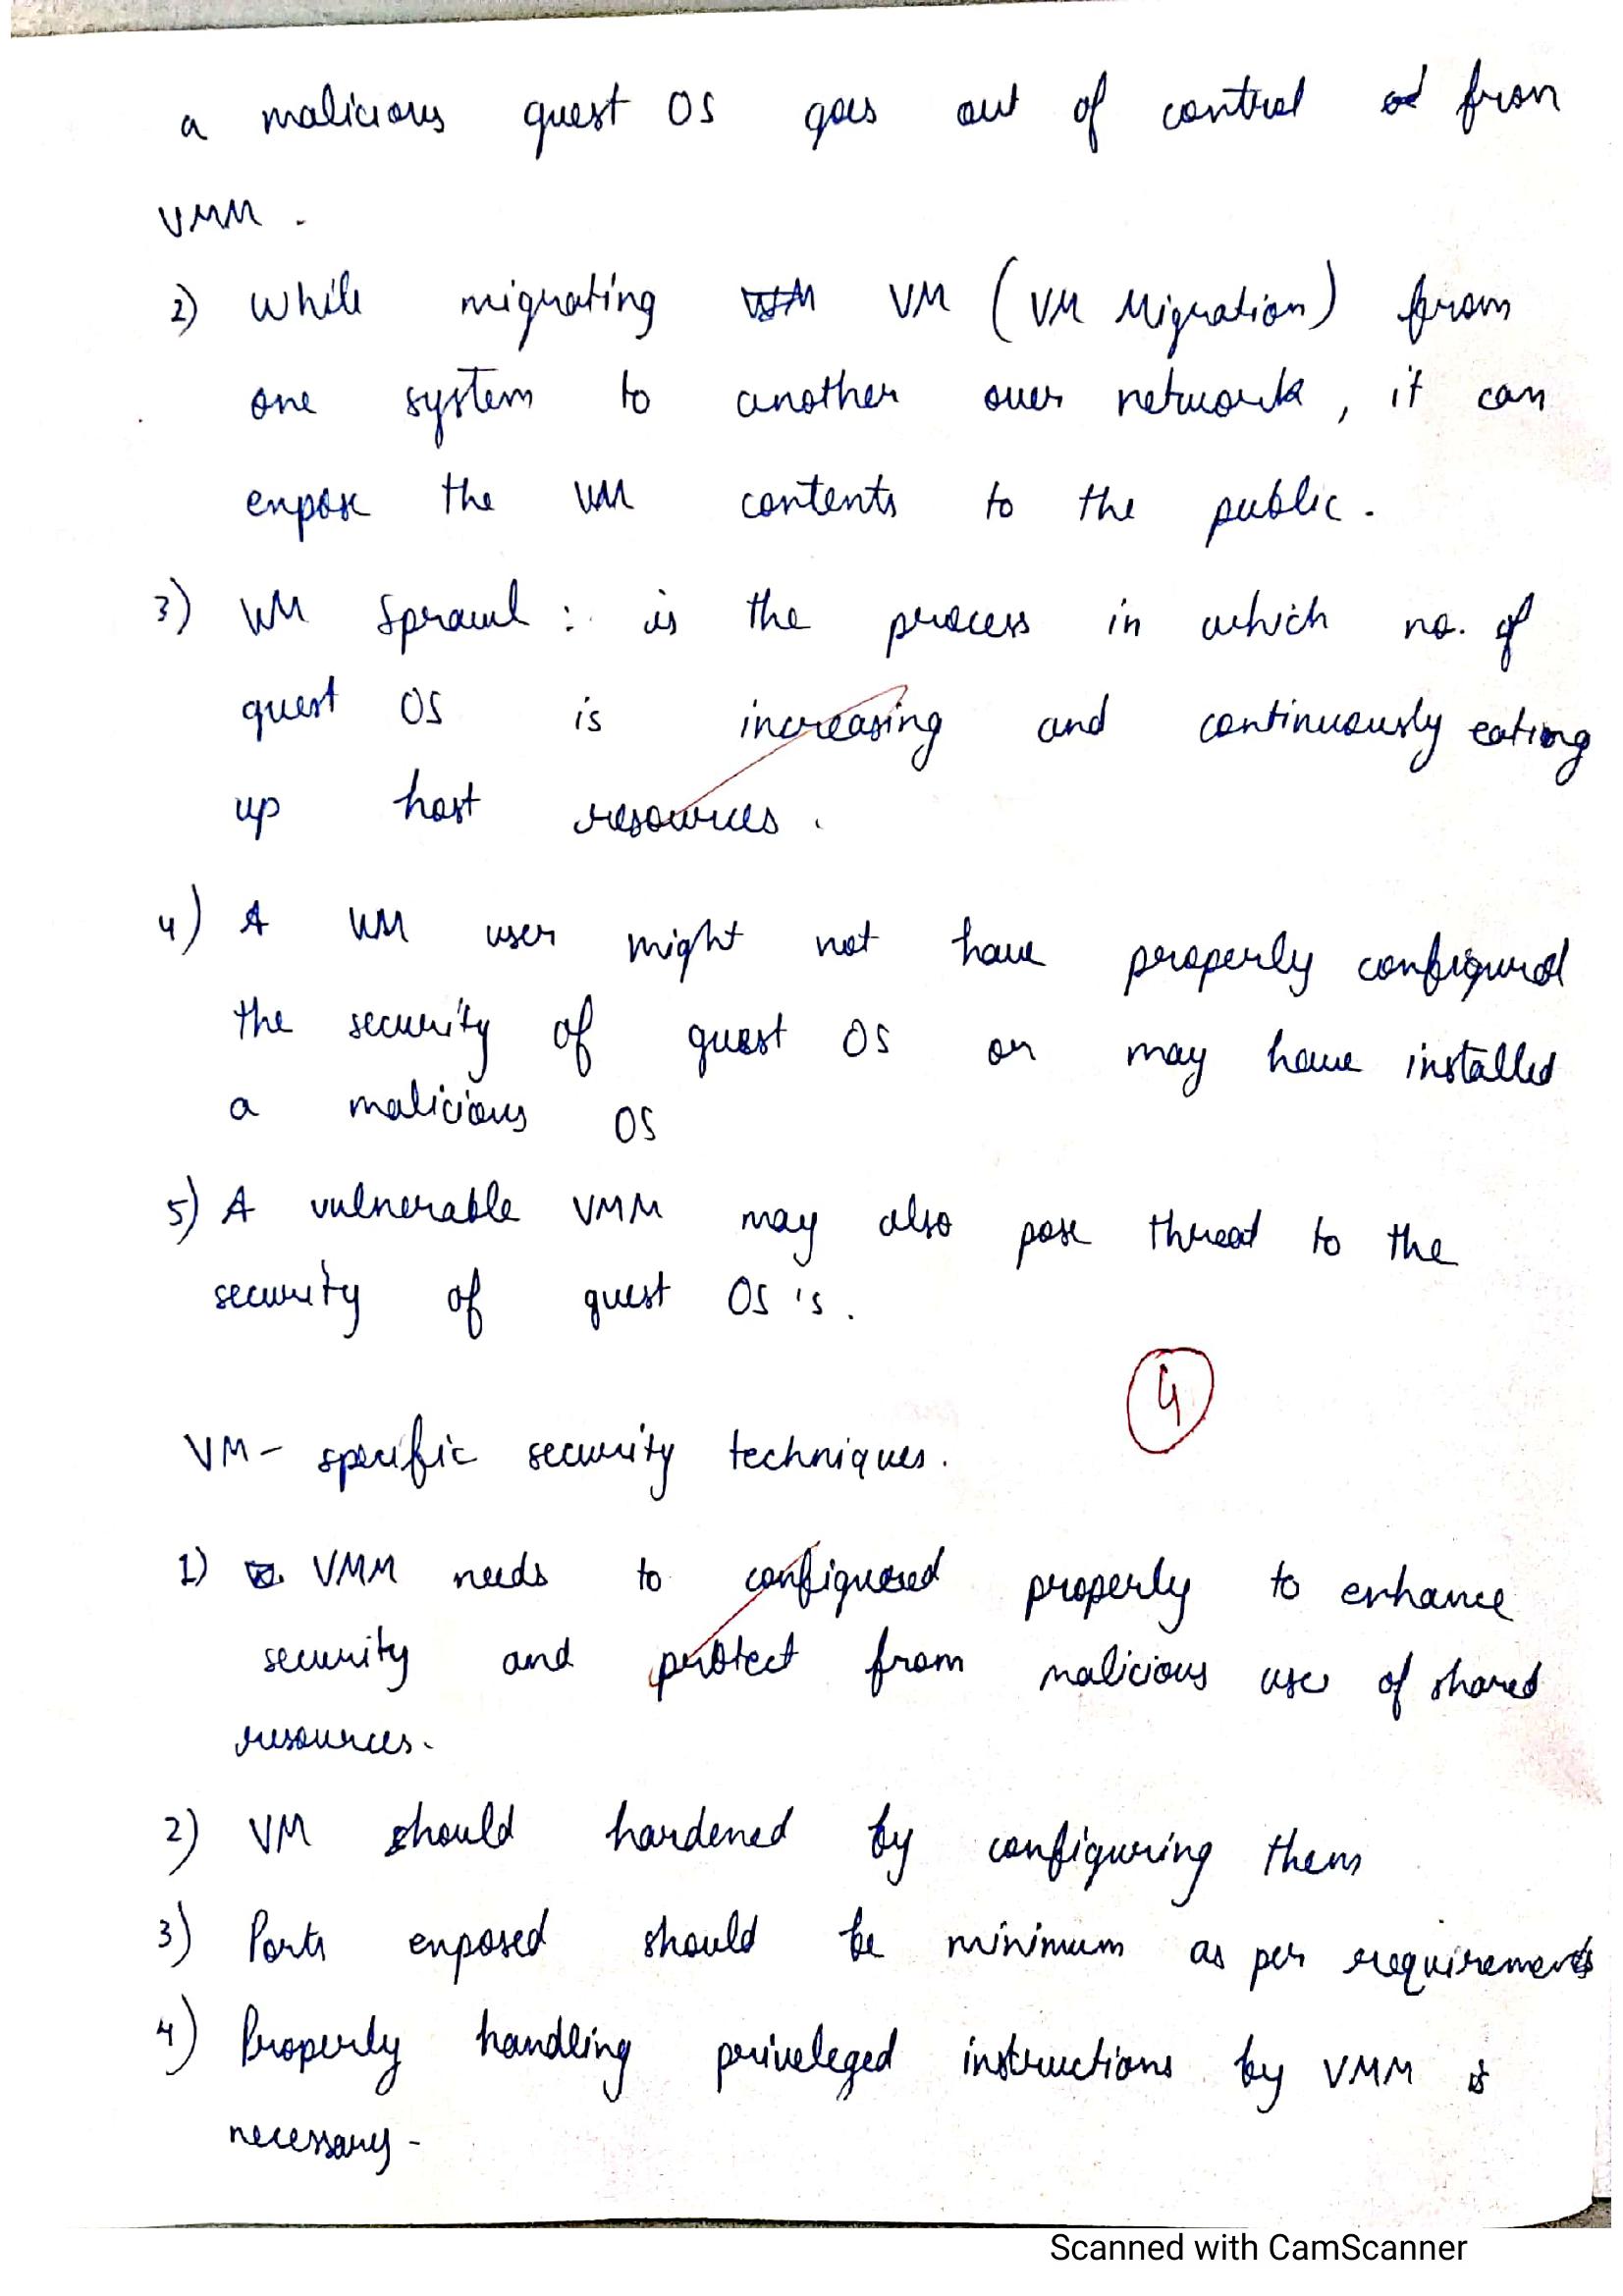 a malicious guest OS goes out of control from
VMM.
2) While migrating VM (VM Migration) from
one system to another over network, it can
expose the VM contents to the public.
3) VM Sprawl: is the process in which no. of
guest OS is increasing and continuously eating
up host resources.
4) A VM user might not have properly configured
the security of guest OS or may have installed
a malicious OS
5) A vulnerable VMM may also pose threat to the
security of guest OS's.
4
VM-specific security techniques.
1) VMM needs to configured properly to enhance
security and protect from malicious use of shared
resources.
2) VM should hardened by configuring them
3) Ports exposed should be minimum as per requirements
4) Properly handling priveleged instructions by VMM is
necessary-
Scanned with CamScanner